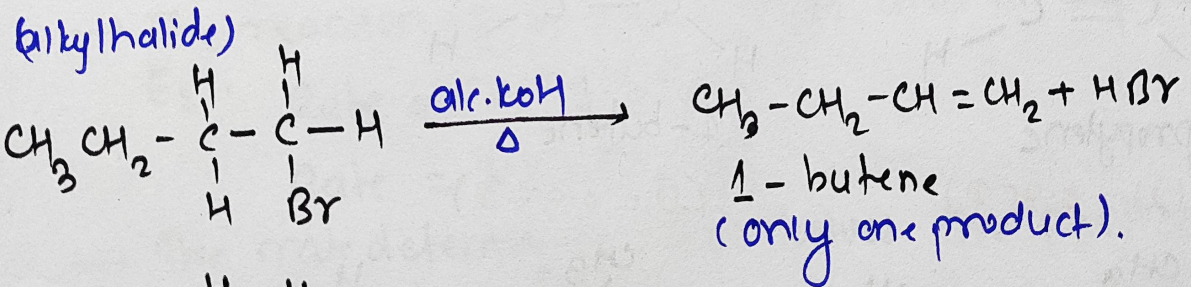 (alkylhalide)
H H
CH₃ CH₂ - C - C - H alc. KOH CH₃ - CH₂ - CH = CH₂ + HBr
Δ
H Br 1 - butene
(only one product).